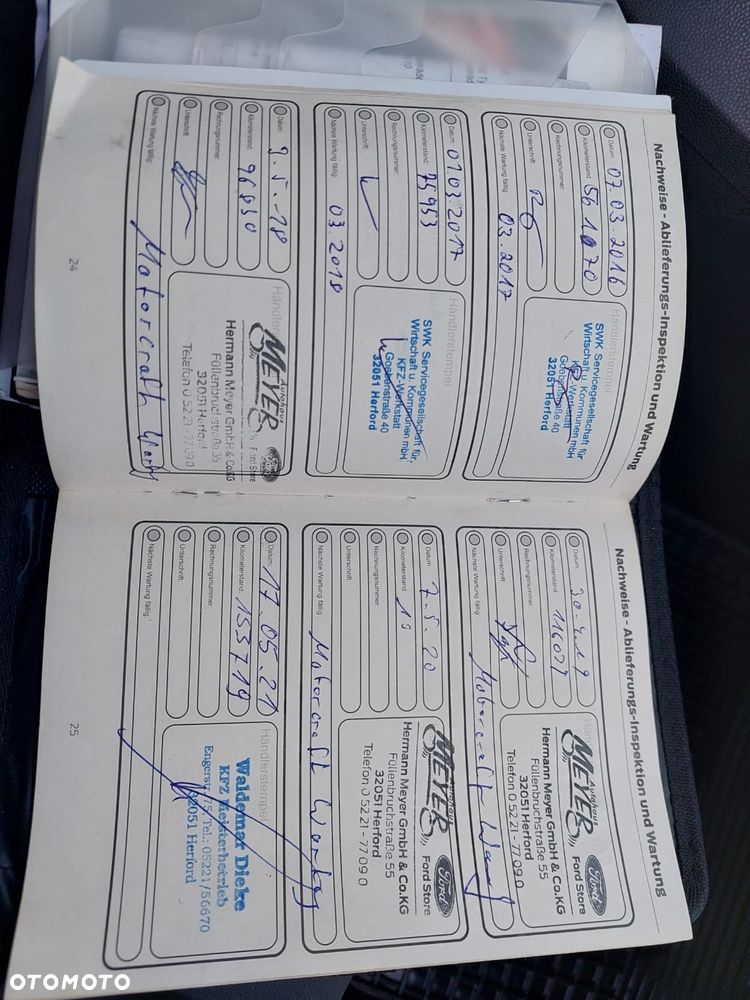 Nachweise - Ablieferungs-Inspektion und Wartung
Datum: 07.03.2016
Kilometerstand: 561070
Rechnungsnummer:
Unterschrift:
Nächste Wartung fällig: 03.2017
Händlerstempel
SWK Servicegesellschaft für
Wirtschaft u. Kommunen mbH
KFZ-Werkstatt
Goebenstraße 40
32051 Herford
Datum: 01.03.2017
Kilometerstand: 75953
Rechnungsnummer:
Unterschrift:
Nächste Wartung fällig: 03 2018
Händlerstempel
SWK Servicegesellschaft für
Wirtschaft u. Kommunen mbH
KFZ-Werkstatt
Goebenstraße 40
32051 Herford
Datum: 9.5.-18
Kilometerstand: 96830
Rechnungsnummer:
Unterschrift:
Nächste Wartung fällig: Motorcraft
Händlerstempel
Autohaus
MEYER
Ford Store
Ford
Hermann Meyer GmbH & Co.KG
Füllenbruchstraße 55
32051 Herford
Telefon 0 52 21 - 77 09 0
24
Nachweise - Ablieferungs-Inspektion und Wartung
Datum: 30-4.19
Kilometerstand:
Rechnungsnummer:
Unterschrift:
Nächste Wartung fällig: Motorcraft
Autohaus
MEYER
Ford Store
Ford
Hermann Meyer GmbH & Co.KG
Füllenbruchstraße 55
32051 Herford
Telefon 0 52 21 - 77 09 0
Datum: 7-5.20
Kilometerstand:
Rechnungsnummer:
Unterschrift:
Nächste Wartung fällig: Motorcraft Wartung
Autohaus
MEYER
Ford Store
Ford
Hermann Meyer GmbH & Co.KG
Füllenbruchstraße 55
32051 Herford
Telefon 0 52 21 - 77 09 0
Datum: 17.05.21
Kilometerstand: 153719
Rechnungsnummer:
Unterschrift:
Nächste Wartung fällig:
Händlerstempel
Waldemar Dieke
KFZ Meisterbetrieb
Engerstr. 75, Tel.: 05221/56670
32051 Herford
25
OTOMOTO